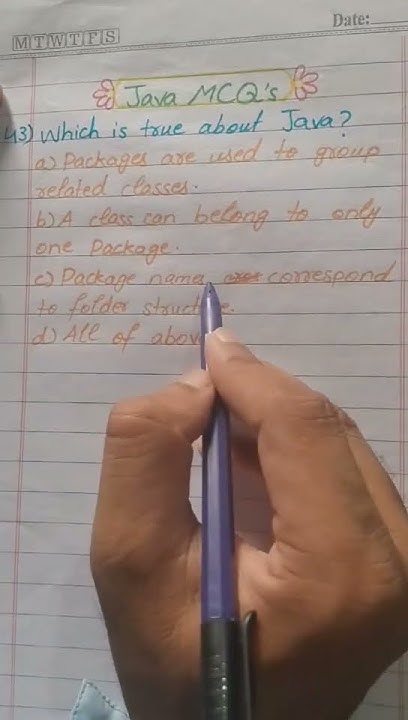 Date:
M T W T F S
Java MCQ's
43) Which is true about Java?
a) Packages are used to group
related classes.
b) A class can belong to only
one Package.
c) Package name correspond
to folder structure.
d) All of above